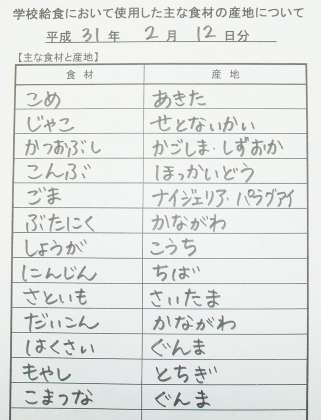 学校給食において使用した主な食材の産地について
平成 31 年 2 月 12 日分
【主な食材と産地】
食材 産地
こめ あきた
じゃこ せとないかい
かつおぶし かごしま・しずおか
こんぶ ほっかいどう
ごま ナイジェリア・パラグアイ
ぶたにく かながわ
しょうが こうち
にんじん ちば
さといも さいたま
だいこん かながわ
はくさい ぐんま
もやし とちぎ
こまつな ぐんま